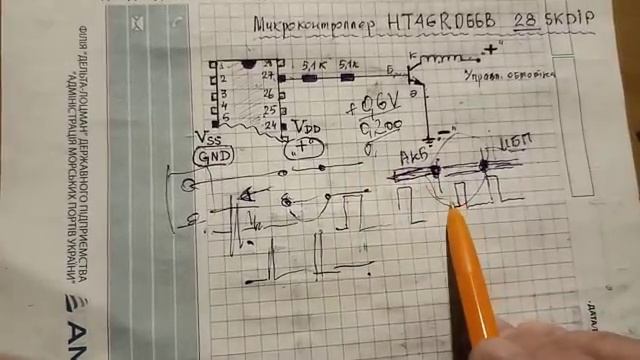 Микроконтроллер HT46R066B 28 SKDIP
1
2
3
4
5
28
27
26
25
24
5,1к
5,1к
К
Б
Э
"+"
Управл. обмотка
+0,6V
0,200
0,
"-"
VSS
GND
VDD
"+"
АКБ
ИБП
ФІЛІЯ "ДЕЛЬТА-ЛОЦМАН" ДЕРЖАВНОГО ПІДПРИЄМСТВА
"АДМІНІСТРАЦІЯ МОРСЬКИХ ПОРТІВ УКРАЇНИ"